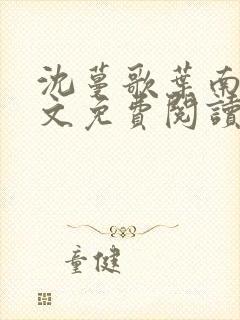 沈蔓歌葉南
文免費閱讀
童健